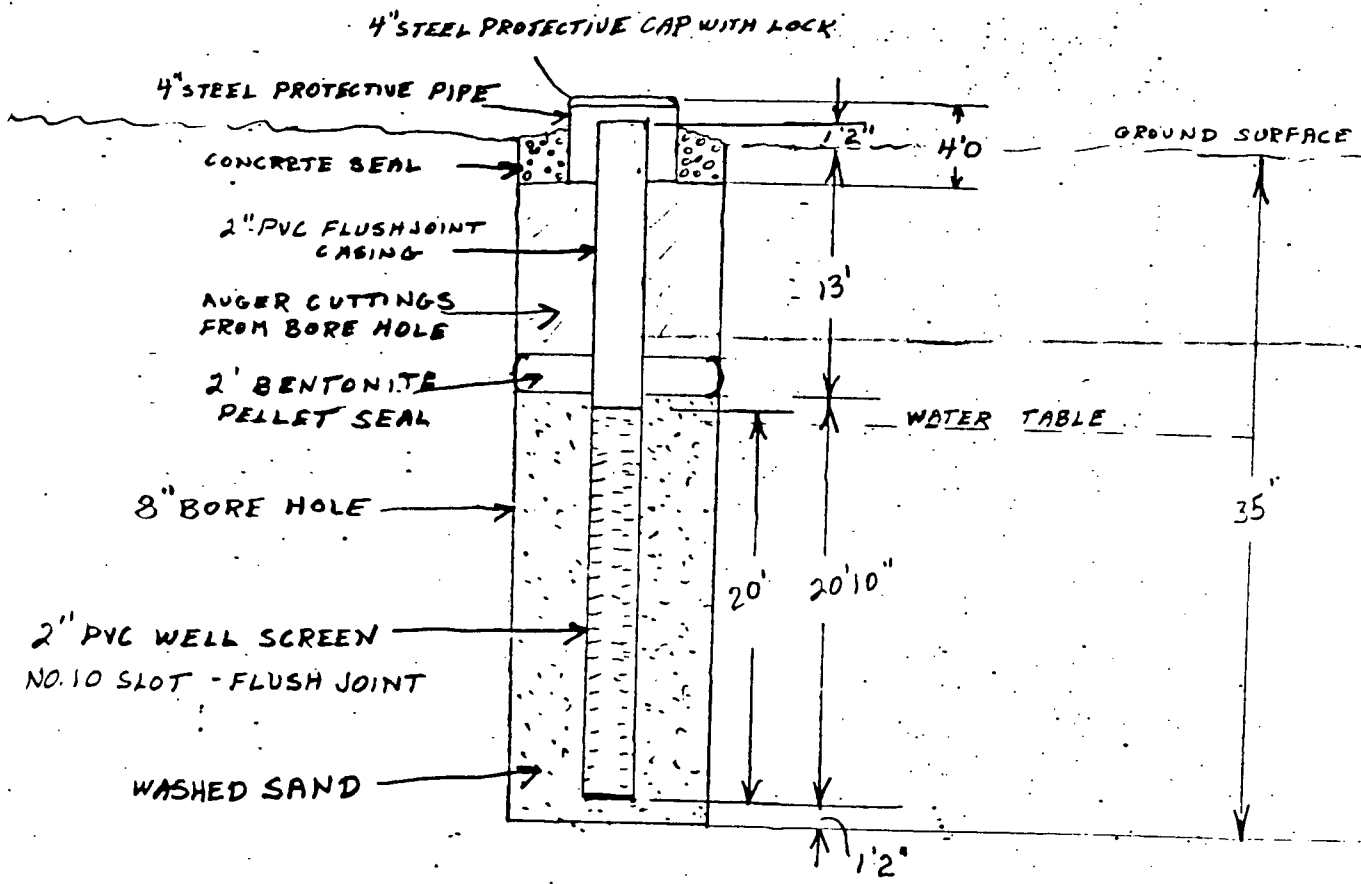 4" STEEL PROTECTIVE CAP WITH LOCK
4" STEEL PROTECTIVE PIPE
1'2"
4'0
GROUND SURFACE
CONCRETE SEAL
2" PVC FLUSHJOINT
CASING
13'
AUGER CUTTINGS
FROM BORE HOLE
2' BENTONITE
PELLET SEAL
WATER TABLE
8" BORE HOLE
35"
20'
20'10"
2" PVC WELL SCREEN
NO. 10 SLOT - FLUSH JOINT
WASHED SAND
1'2"